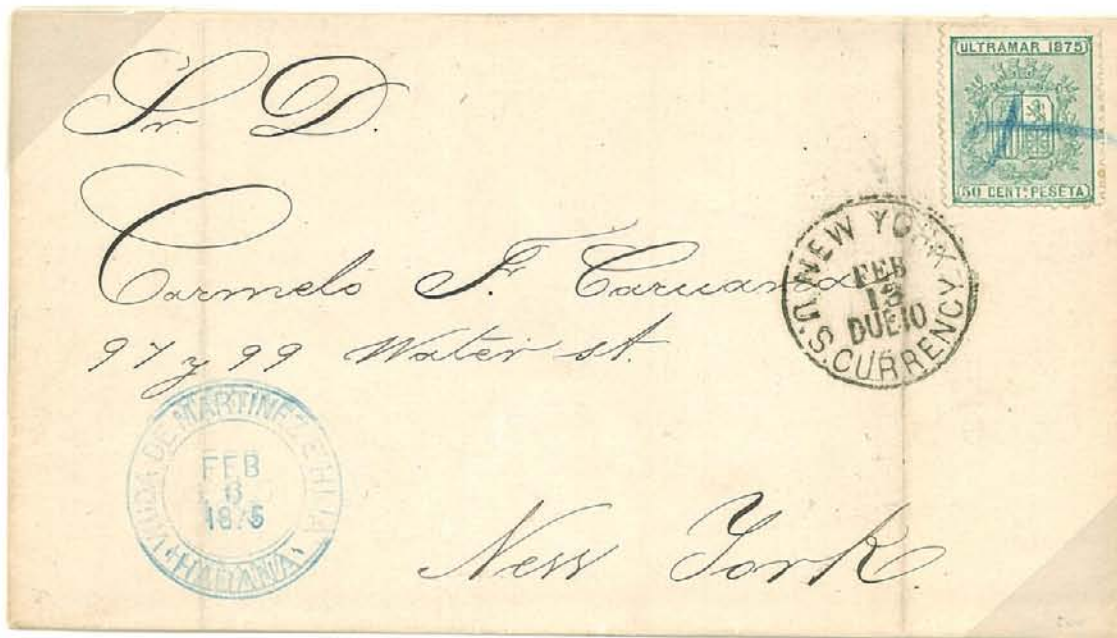 Sr. D.
ULTRAMAR 1875
50 CENT. PESETA
Carmelo F. Caruana
97 y 99 Water st.
NEW YORK
FEB
13
DUE 10
U.S. CURRENCY
VIUDA DE MARTINEZ E HIJA
FEB
6
1875
HABANA
New York.